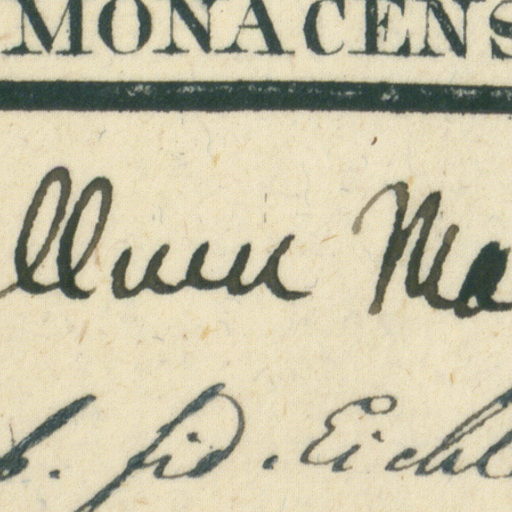 MONACENS
llum Ma
b. fid. Eichl